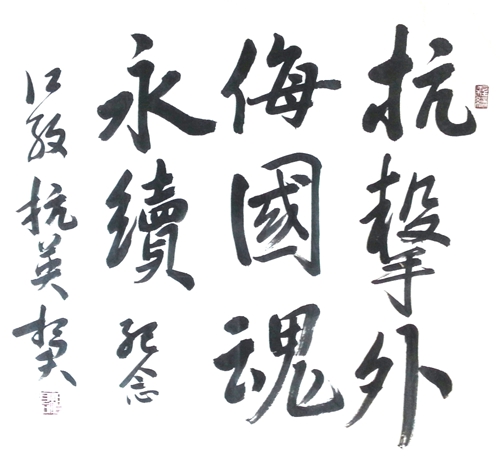 抗擊外
侮國魂
永續 紀念
抗英